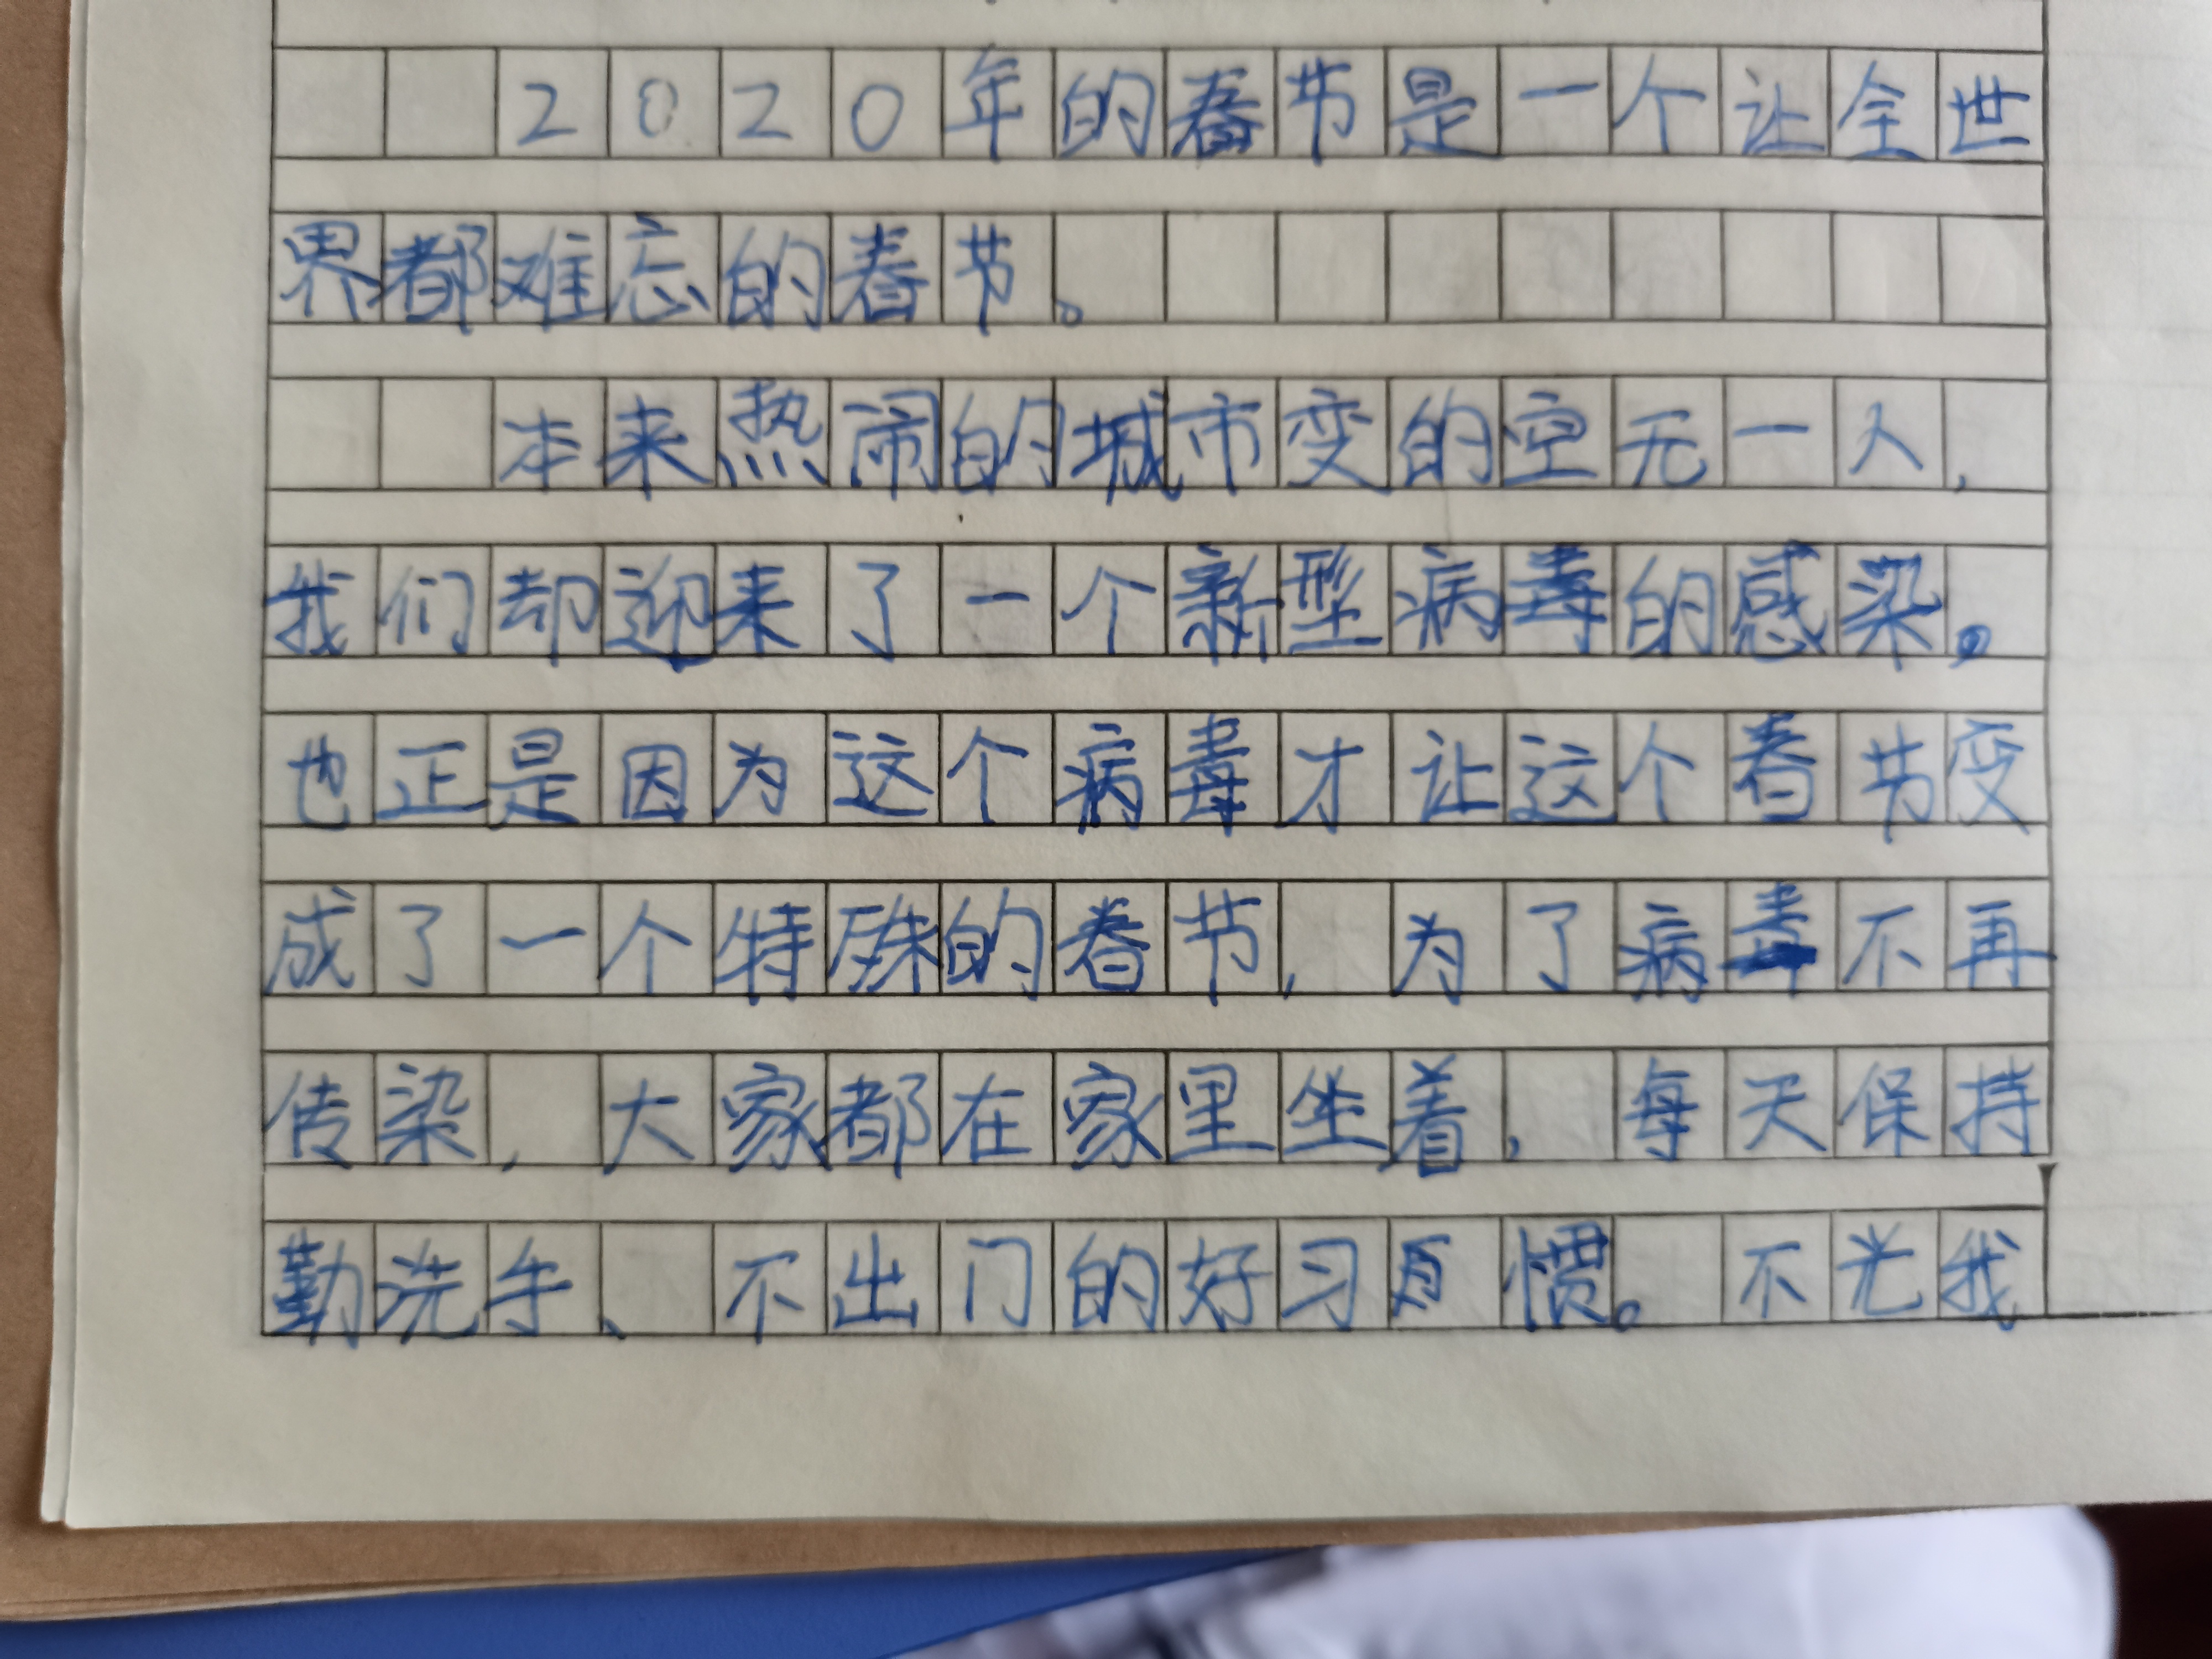 2020年的春节是一个让全世
界都难忘的春节。
本来热闹的城市变的空无一人，
我们却迎来了一个新型病毒的感染。
也正是因为这个病毒才让这个春节变
成了一个特殊的春节，为了病毒不再
传染，大家都在家里坐着，每天保持
勤洗手、不出门的好习惯。不光我